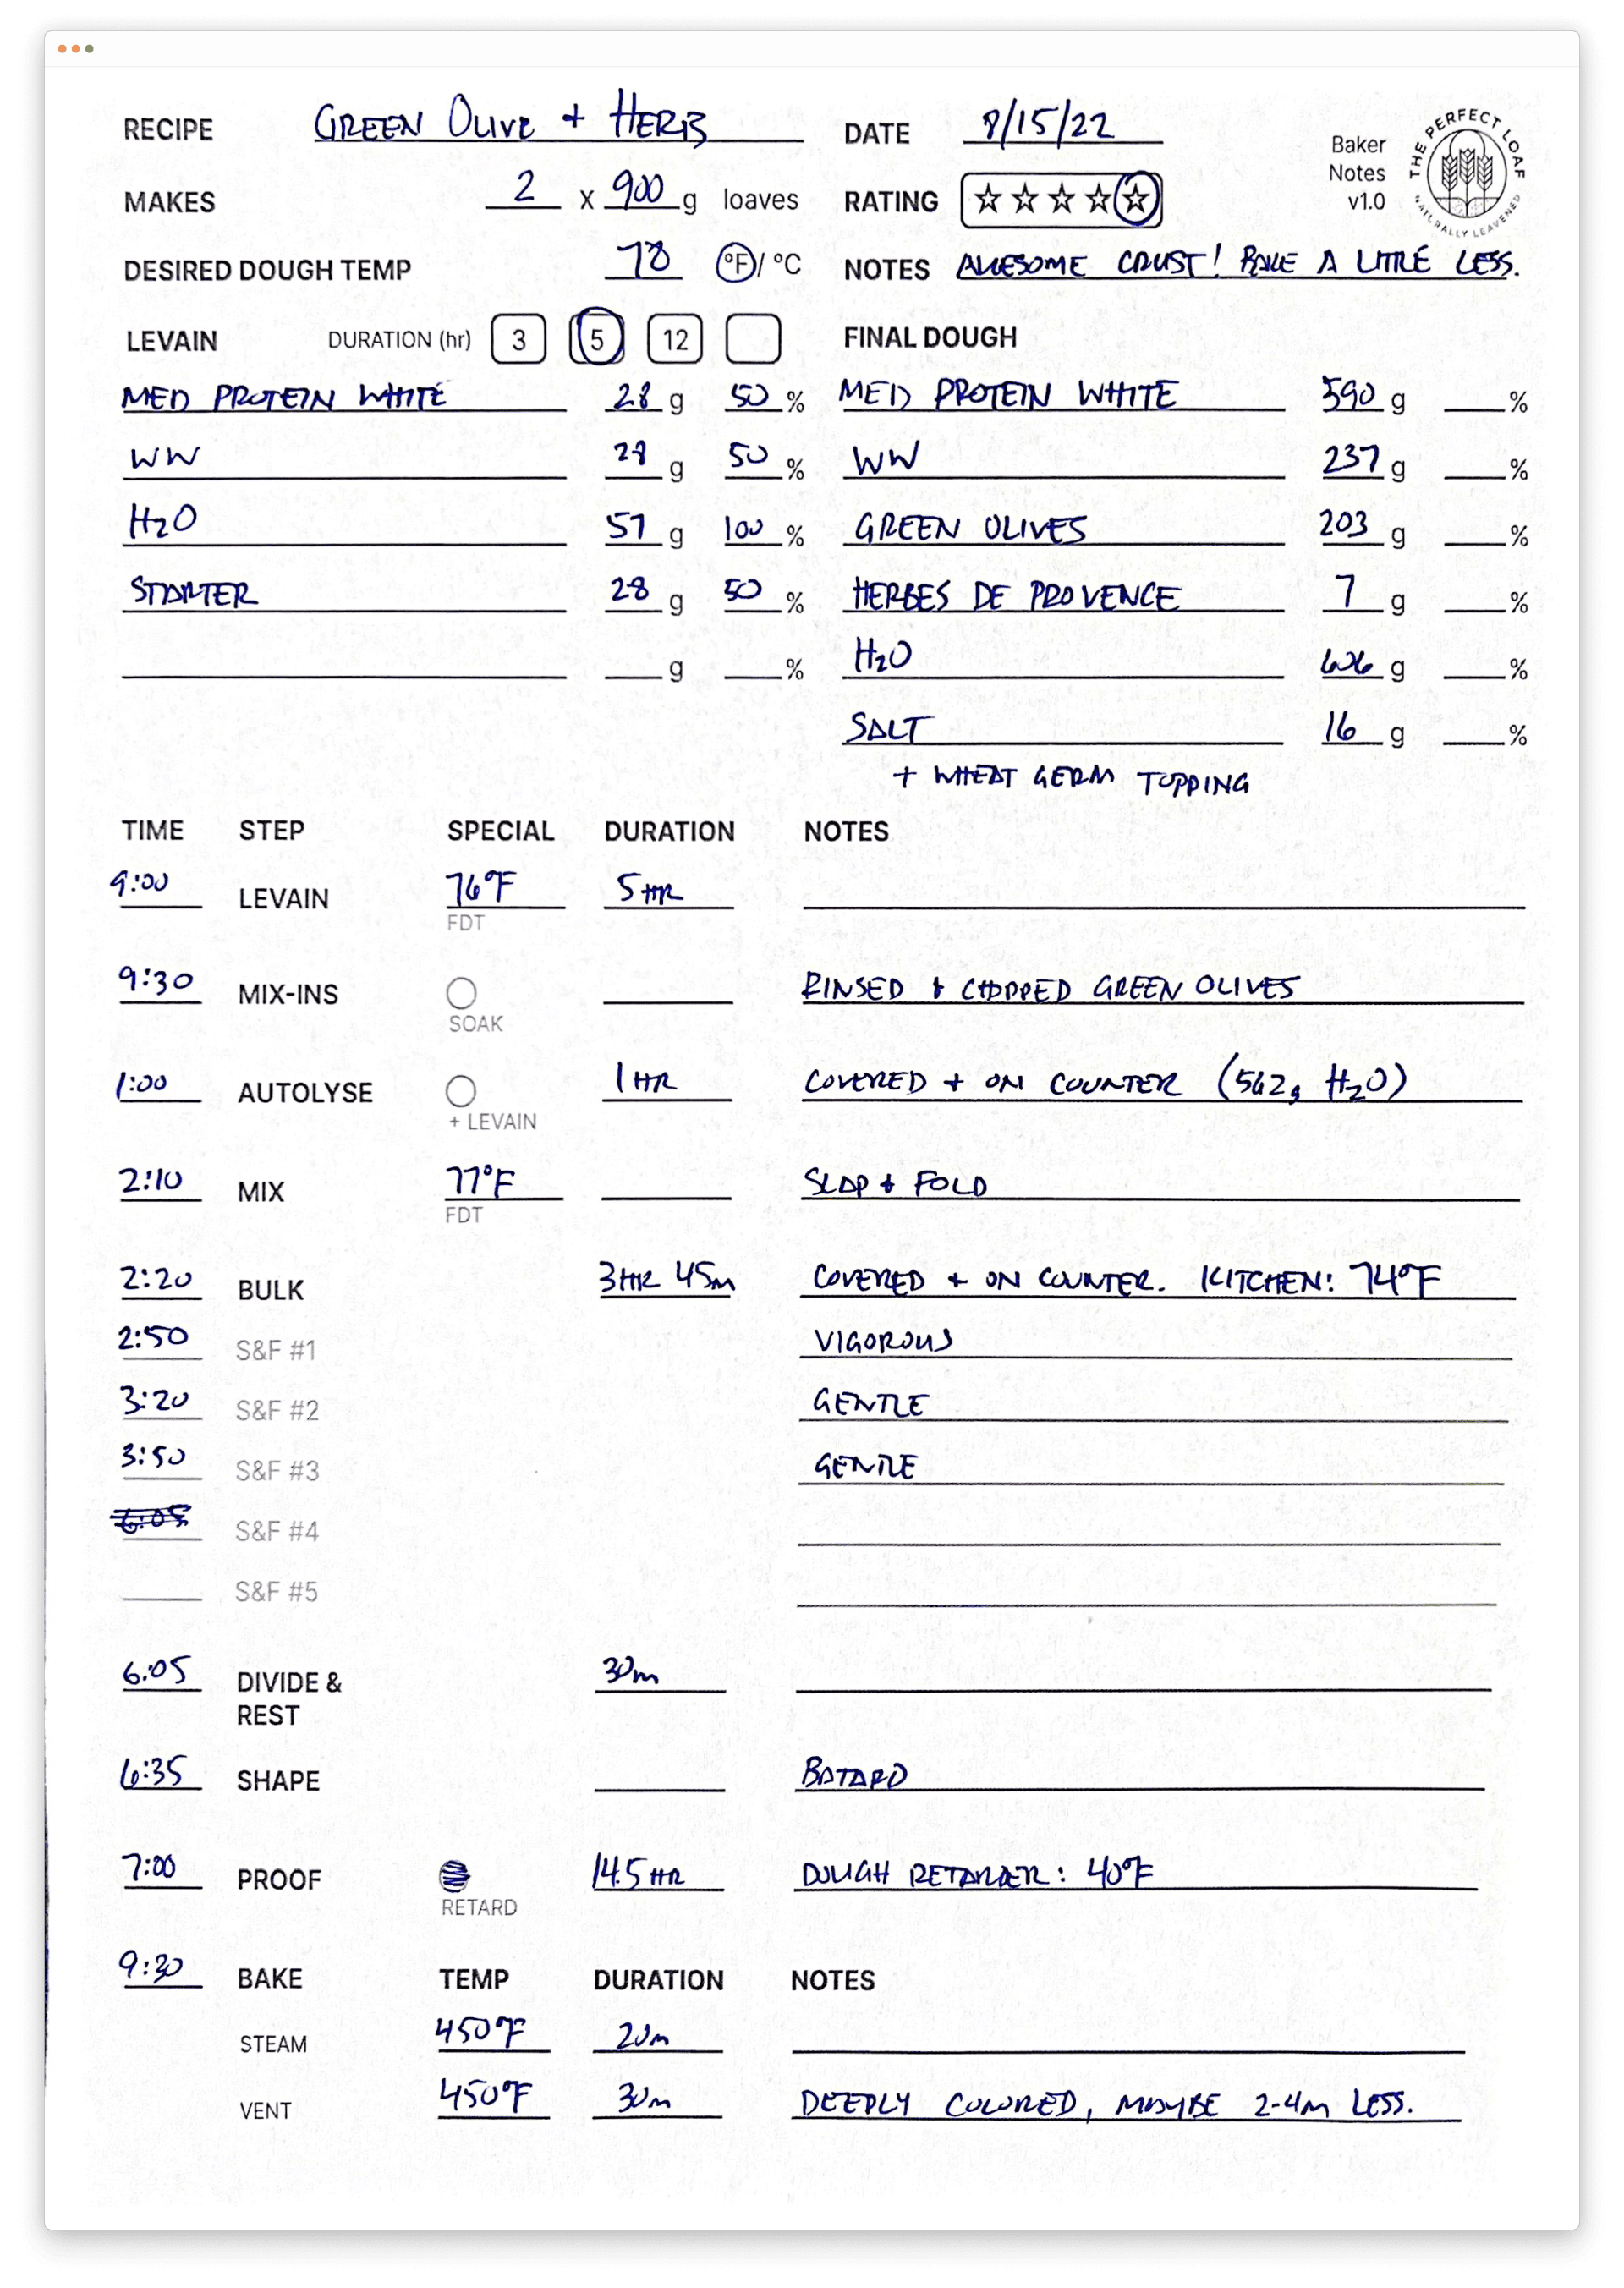 RECIPE GREEN OLIVE + HERB DATE 8/15/22
Baker Notes v1.0
THE PERFECT LOAF
NATURALLY LEAVENED
MAKES 2 x 900 g loaves RATING ☆☆☆☆☆
DESIRED DOUGH TEMP 78 °F / °C NOTES AWESOME CRUST! BAKE A LITTLE LESS.
LEVAIN DURATION (hr) 3 5 12 FINAL DOUGH
MED PROTEIN WHITE 28 g 50 % MED PROTEIN WHITE 590 g %
WW 28 g 50 % WW 237 g %
H2O 57 g 100 % GREEN OLIVES 203 g %
STARTER 28 g 50 % HERBES DE PROVENCE 7 g %
g % H2O 606 g %
SALT 16 g %
+ WHEAT GERM TOPPING
TIME STEP SPECIAL DURATION NOTES
9:00 LEVAIN 76°F 5 HR
FDT
9:30 MIX-INS RINSED + CHOPPED GREEN OLIVES
SOAK
1:00 AUTOLYSE 1 HR COVERED + ON COUNTER (562g H2O)
+ LEVAIN
2:10 MIX 77°F SLAP + FOLD
FDT
2:20 BULK 3HR 45m COVERED + ON COUNTER. KITCHEN: 74°F
2:50 S&F #1 VIGOROUS
3:20 S&F #2 GENTLE
3:50 S&F #3 GENTLE
6:05 S&F #4
S&F #5
6:05 DIVIDE & 30m
REST
6:35 SHAPE BATARD
7:00 PROOF 14.5 HR DOUGH RETARDER: 40°F
RETARD
9:30 BAKE TEMP DURATION NOTES
STEAM 450°F 20m
VENT 450°F 30m DEEPLY COLORED, MAYBE 2-4m LESS.